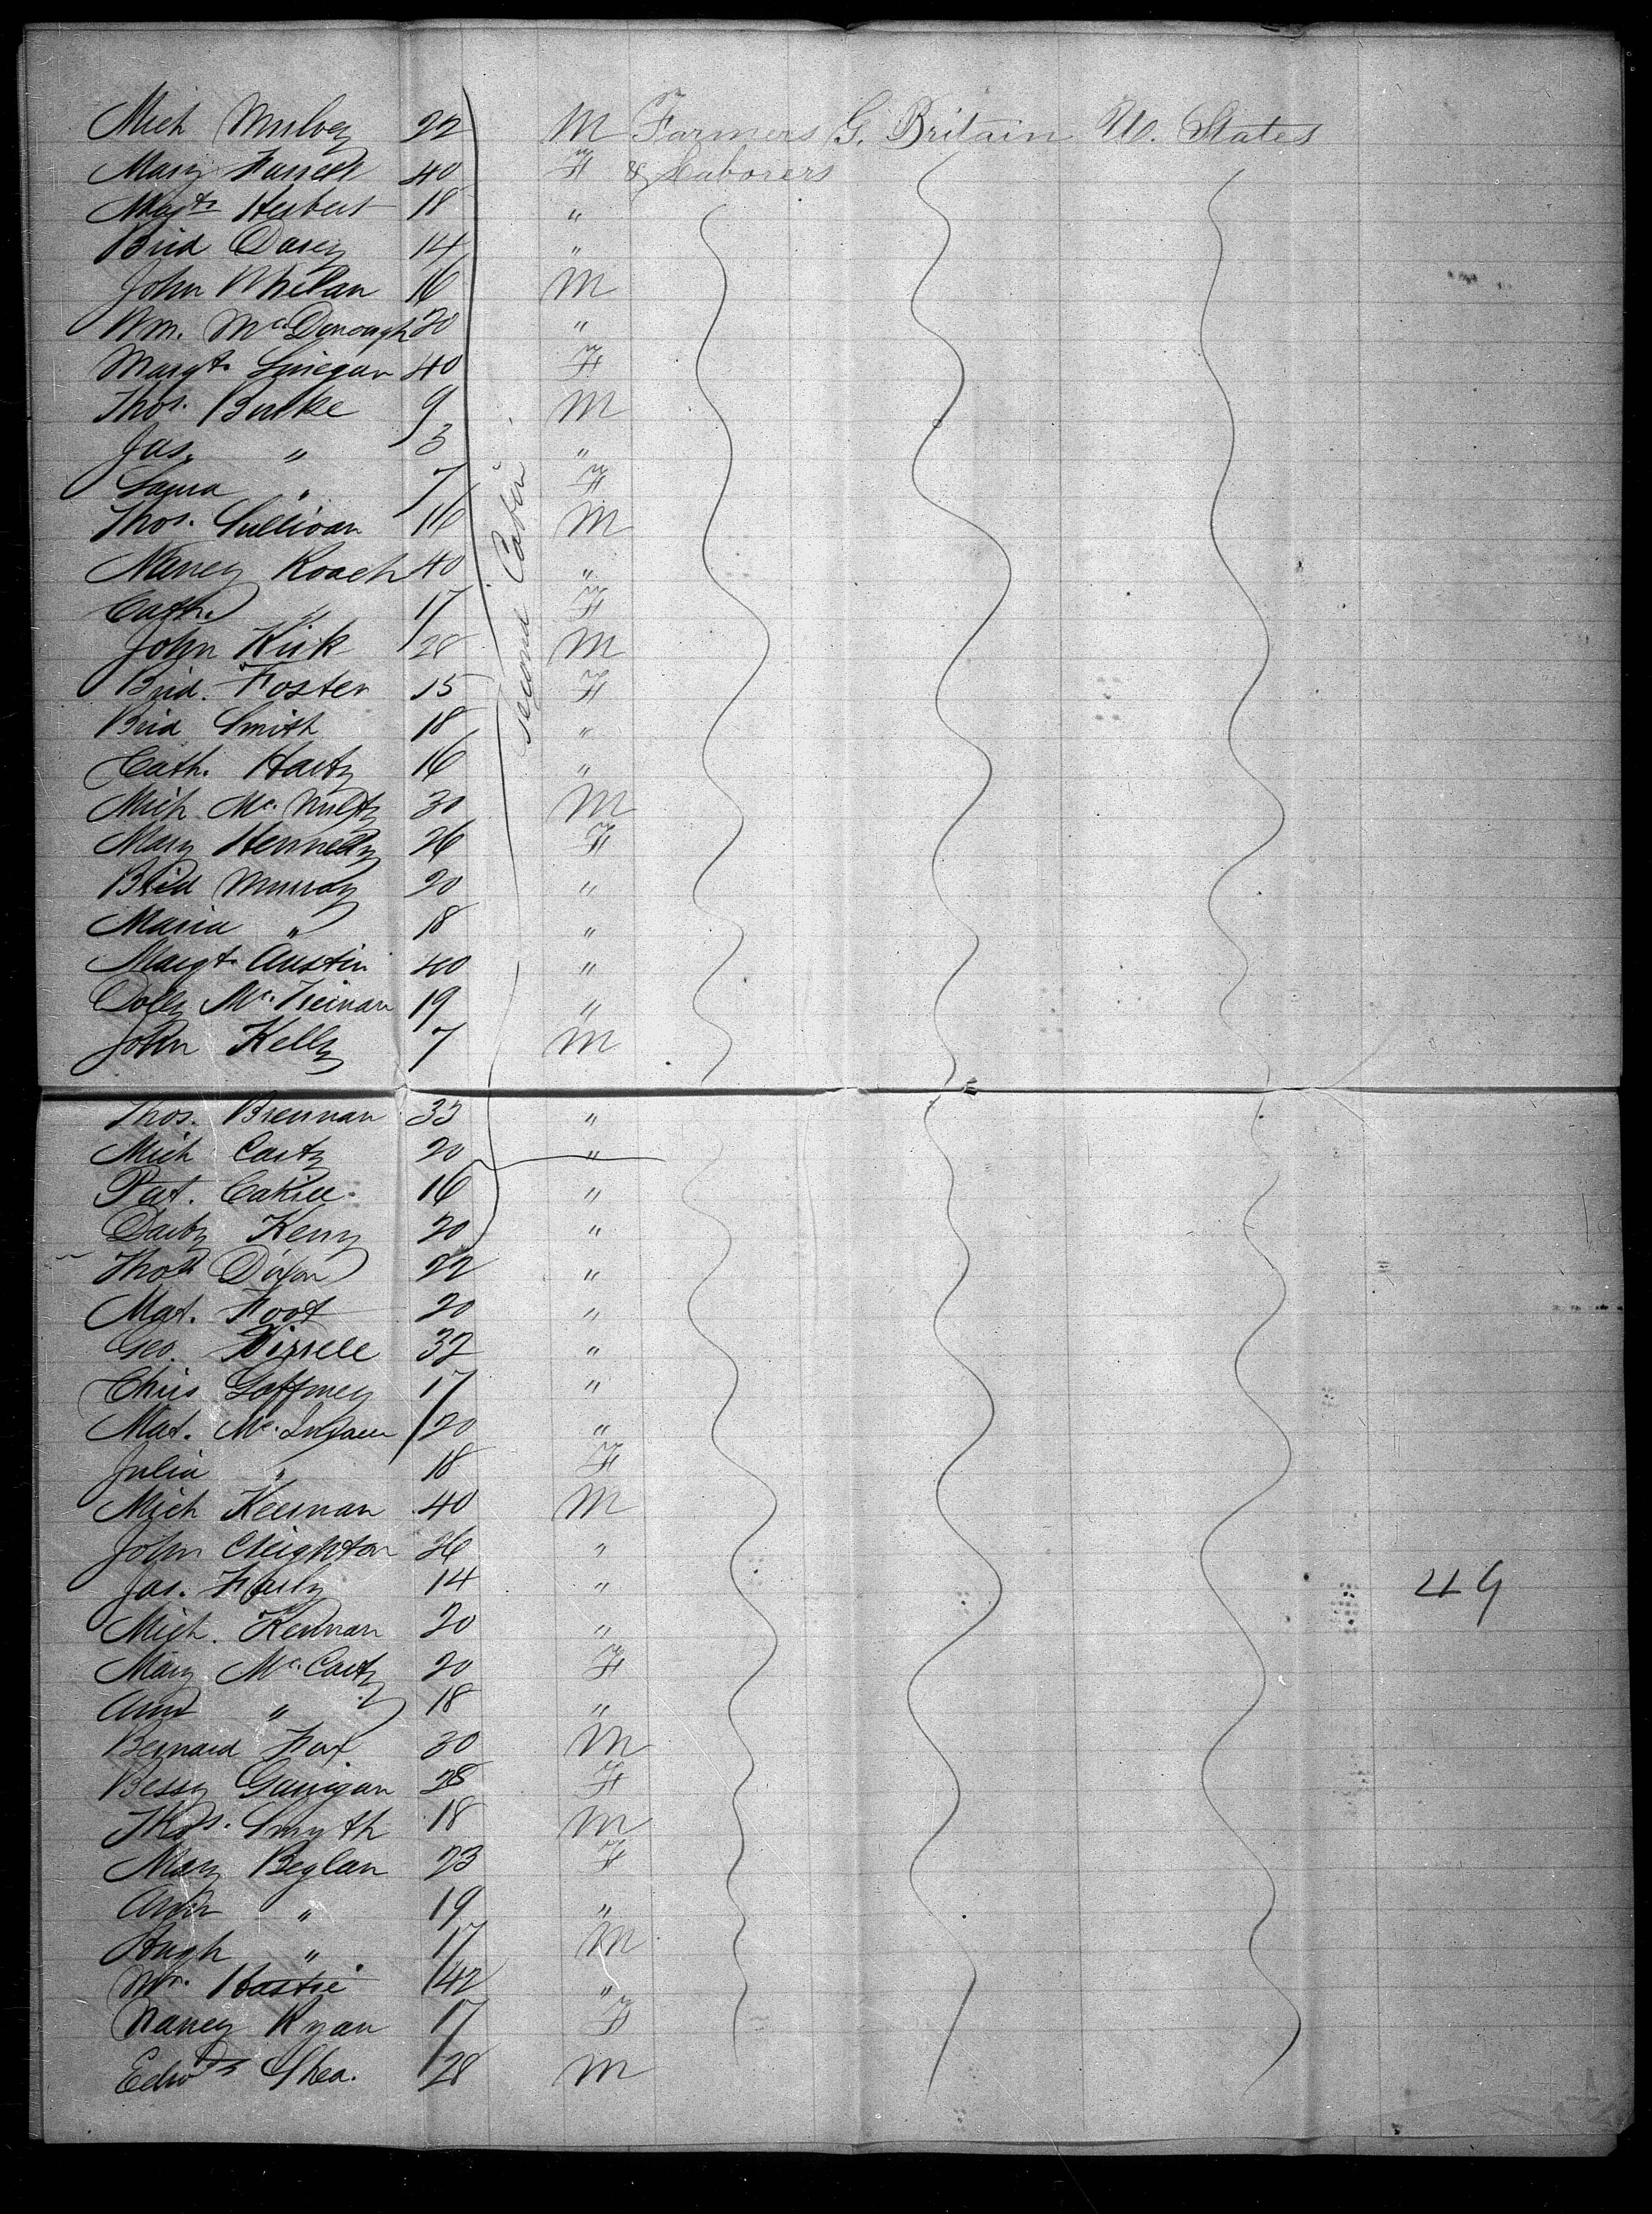 Mich Mulvey 22 M Farmers G. Britain U. States
Mary Farrell 40 F & Laborers
Margt. Herbert 18 "
Brid Darcy 14 "
John Whelan 16 M
Wm. McDonough 20 "
Margt. Finegan 40 F
Thos. Burke 9 M
Jas. " 3 "
Laura " 7 F
Thos. Sullivan 16 M
Nancy Roach 40 "
Cath. " 17 F
John Kirk 28 M
Brid. Foster 15 F
Brid Smith 18 "
Cath. Harty 16 "
Mich. Mc.Nulty 30 M
Mary Kennedy 26 F
Brid Murray 20 "
Maria " 18 "
Margt. Austin 40 "
Dolly Mc.Tiernan 19 "
John Kelly 7 M
Second Cabin
Thos. Brennan 33 "
Mich Carty 20 "
Pat. Cahill 16 "
Darby Kerry 20 "
Thos Dixon 22 "
Mat. Foot 20 "
Geo. 32 "
Chris Gaffney 17 "
Mat. Mc. 20 "
Julia " 18 F
Mich Keernan 40 M
John Creighton 26 "
Jas. 14 "
49
Mich. Kernan 20 "
Mary Mc.Carty 20 F
Ann " 18 "
Bernard Fox 30 M
Bessy Garrigan 28 F
Thos. Smyth 18 M
Mary Beglan 23 F
Ann " 19 "
Hugh " 17 M
Mr. Hastie 42 "
Nancy Ryan 17 F
Edwd Shea. 28 M